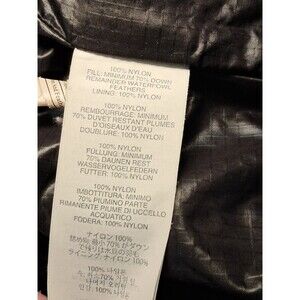 100% NYLON
FILL: MINIMUM 70% DOWN
REMAINDER WATERFOWL
FEATHERS
LINING: 100% NYLON
100% NYLON
REMBOURRAGE: MINIMUM
70% DUVET RESTANT PLUMES
D'OISEAUX D'EAU
DOUBLURE: 100% NYLON
100% NYLON
FÜLLUNG: MINIMUM
70% DAUNEN REST
WASSERVOGELFEDERN
FUTTER: 100% NYLON
100% NYLON
IMBOTTITURA: MINIMO
70% PIUMINO PARTE
RIMANENTE PIUME DI UCCELLO
ACQUATICO
FODERA: 100% NYLON
ナイロン 100%
詰め物 最小 70% がダウン
ライニング ナイロン 100%
100% 나일론